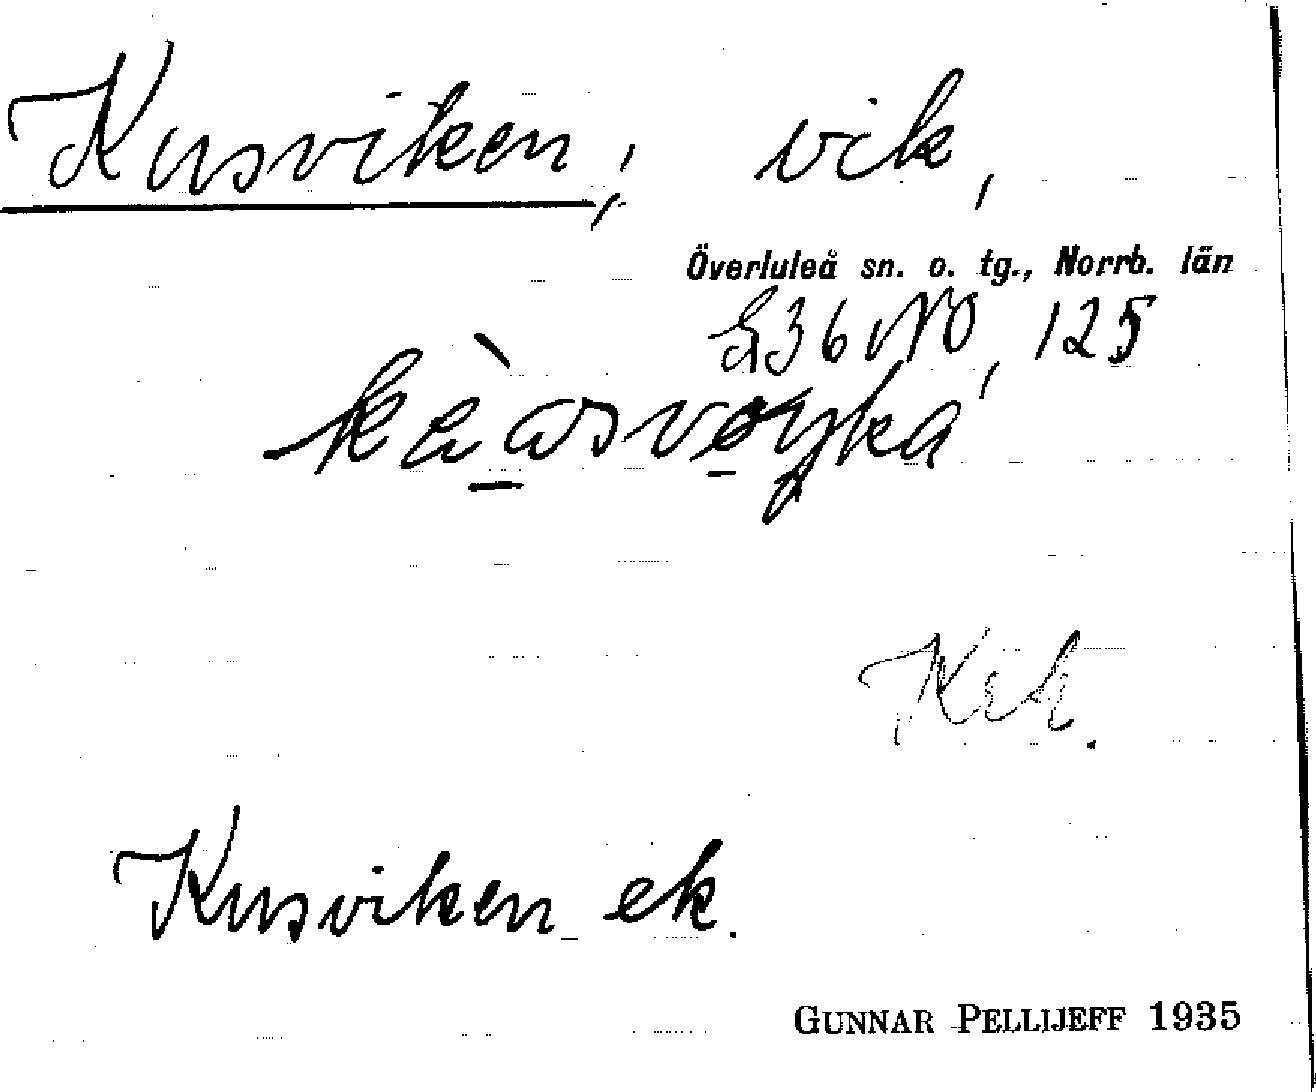 Kusviken, vik,
Överluleå sn. o. tg., Norrb. län
36 NO, 125
Kusviken ek.
GUNNAR PELLIJEFF 1935